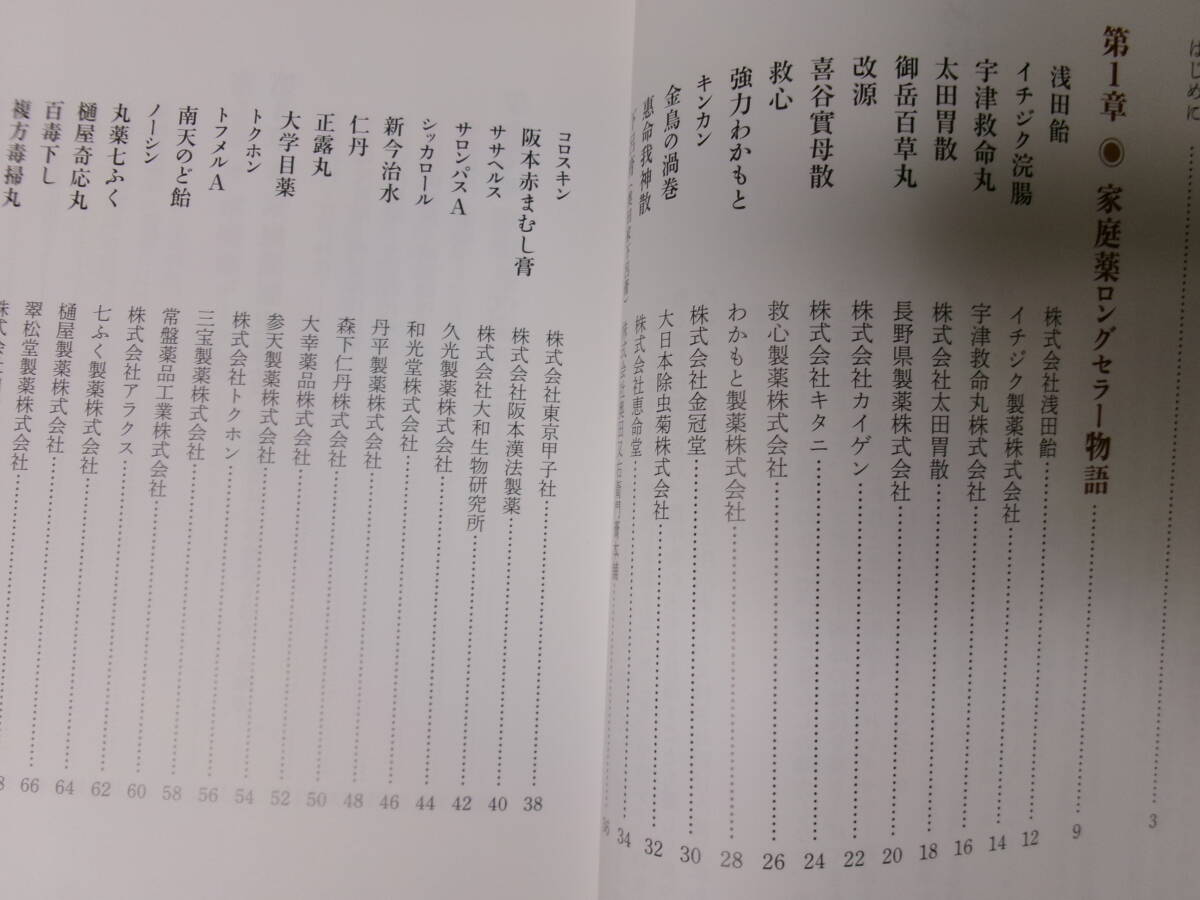 はじめに……3
第1章 ◉ 家庭薬ロングセラー物語……9
浅田飴 株式会社浅田飴……12
イチジク浣腸 イチジク製薬株式会社……14
宇津救命丸 宇津救命丸株式会社……16
太田胃散 株式会社太田胃散……18
御岳百草丸 長野県製薬株式会社……20
改源 株式会社カイゲン……22
喜谷實母散 株式会社キタニ……24
救心 救心製薬株式会社……26
強力わかもと わかもと製薬株式会社……28
キンカン 株式会社金冠堂……30
金鳥の渦巻 大日本除虫菊株式会社……32
恵命我神散 株式会社恵命堂……34
36
コロスキン 株式会社東京甲子社……38
阪本赤まむし膏 株式会社阪本漢法製薬……40
ササヘルス 株式会社大和生物研究所……42
サロンパスA 久光製薬株式会社……44
シッカロール 和光堂株式会社……46
新今治水 丹平製薬株式会社……48
仁丹 森下仁丹株式会社……50
正露丸 大幸薬品株式会社……52
大学目薬 参天製薬株式会社……54
トクホン 株式会社トクホン……56
トフメルA 三宝製薬株式会社……58
南天のど飴 常盤薬品工業株式会社……60
ノーシン 株式会社アラクス……62
丸薬七ふく 七ふく製薬株式会社……64
樋屋奇応丸 樋屋製薬株式会社……66
百毒下し 翠松堂製薬株式会社……8
複方毒掃丸 株式会社